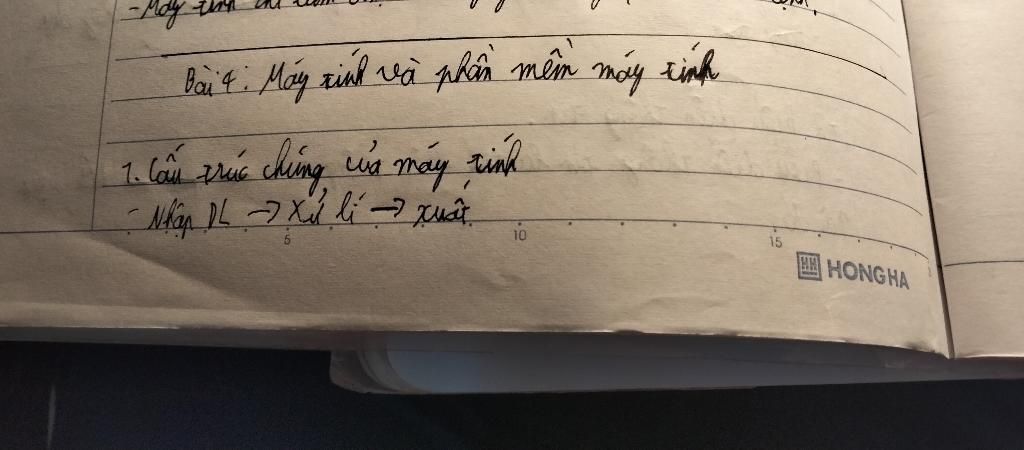 - Máy tính chỉ làm
Bài 4: Máy tính và phần mềm máy tính
1. Cấu trúc chúng của máy tính
- Nhập DL → Xử lí → xuất
5 10 15
HH HONG HA